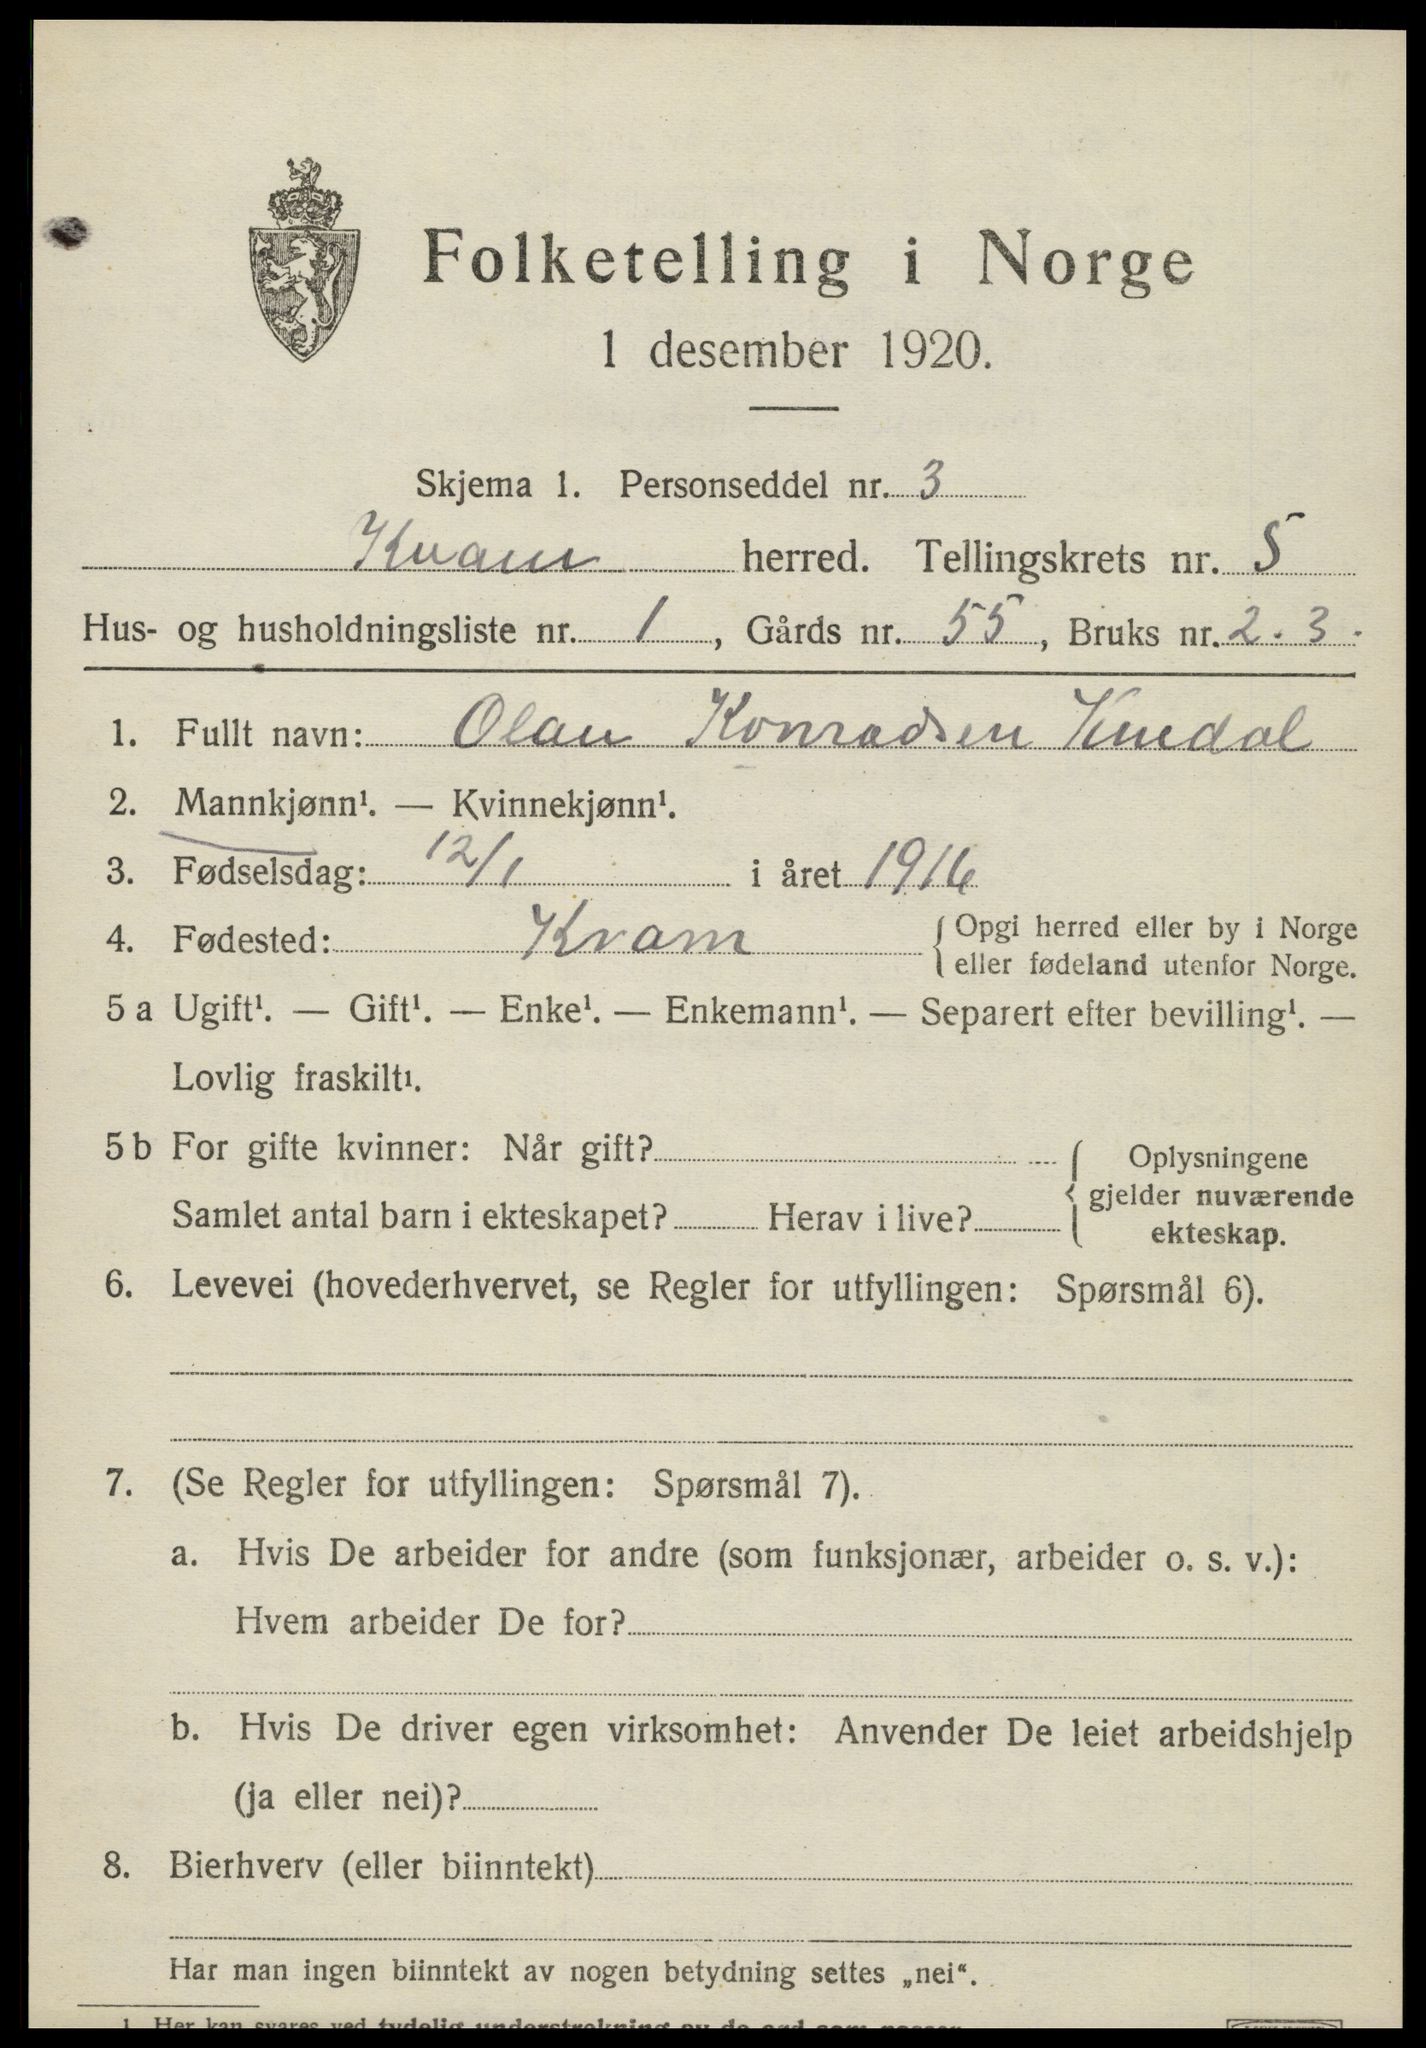 Folketelling i Norge
1 desember 1920.
Skjema 1. Personseddel nr. 3
Kvam herred. Tellingskrets nr. 5
Hus- og husholdningsliste nr. 1, Gårds nr. 55, Bruks nr. 2. 3.
1. Fullt navn: Olav Konradsen
2. Mannkjønn¹. — Kvinnekjønn¹.
3. Fødselsdag: 12/1 i året 1916
4. Fødested: Kvam { Opgi herred eller by i Norge
eller fødeland utenfor Norge.
5 a Ugift¹. — Gift¹. — Enke¹. — Enkemann¹. — Separert efter bevilling¹. —
Lovlig fraskilt¹.
5 b For gifte kvinner: Når gift?
Samlet antal barn i ekteskapet? Herav i live?
{ Oplysningene
gjelder nuværende
ekteskap.
6. Levevei (hovederhvervet, se Regler for utfyllingen: Spørsmål 6).
7. (Se Regler for utfyllingen: Spørsmål 7).
a. Hvis De arbeider for andre (som funksjonær, arbeider o. s. v.):
Hvem arbeider De for?
b. Hvis De driver egen virksomhet: Anvender De leiet arbeidshjelp
(ja eller nei)?
8. Bierhverv (eller biinntekt)
Har man ingen biinntekt av nogen betydning settes „nei“.
1. Her kan svares ved tydelig understrekning av de ord som passer